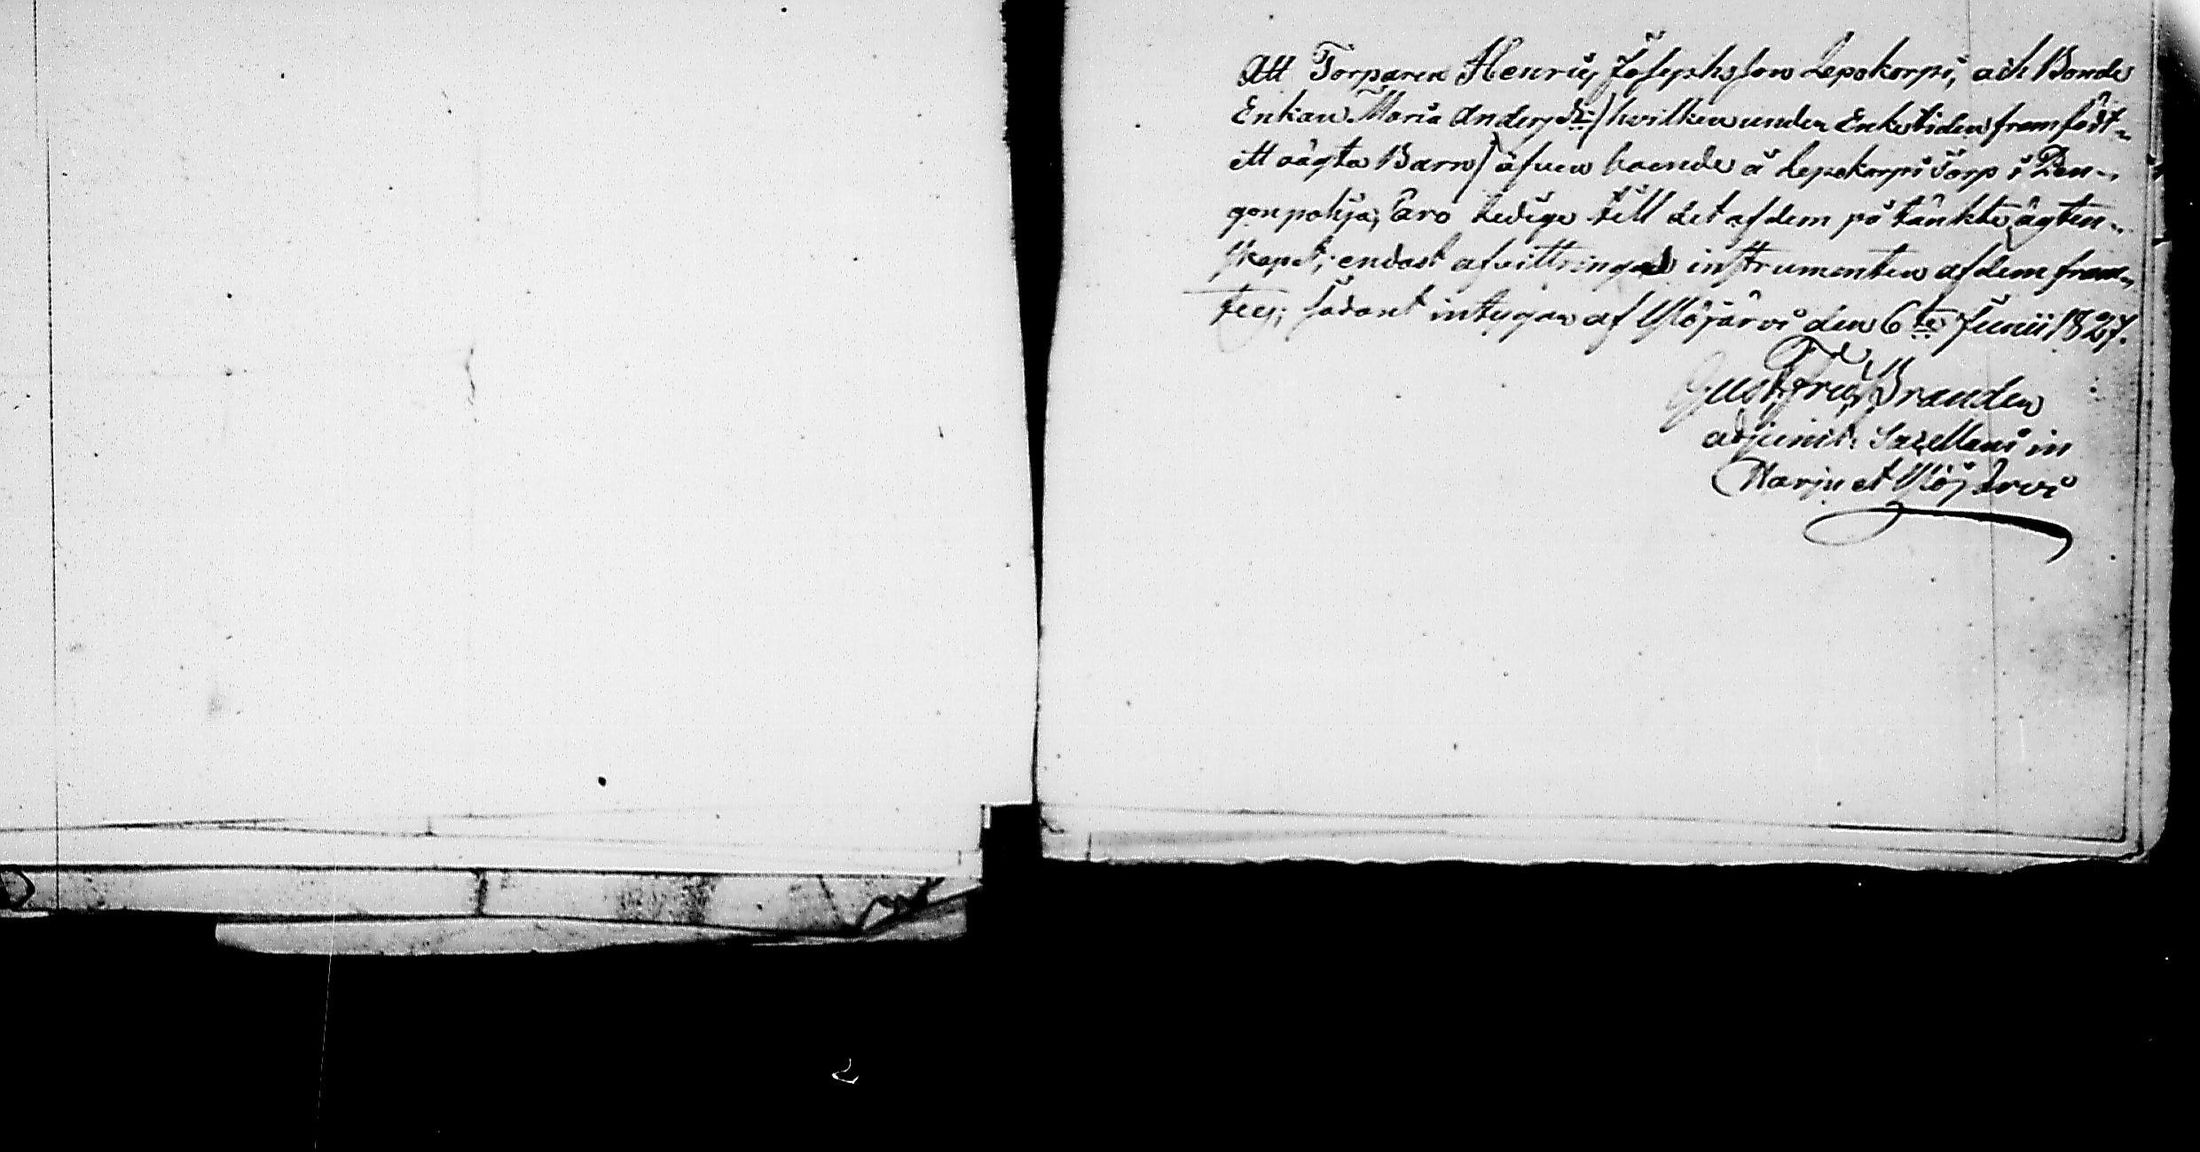 Att Torparen Henric Josephsson Lepokorpi, och Bonde
Enkan Maria Andersdr: / hvilken under Enketiden framfödt
ett oägta Barn / äfven boende å Lepokorpi Torp i Pen-
gonpohja; äro Ledige till det af dem på tänkte ägten-
skapet; endast afvittrings instrumenten af dem fram-
tees; sådant intygar af Ylöjärvi den 6te Junii 1827.
Gust: Fred: Branden
adjunct: Sacellani in
Harju et Ylöjärvi
2